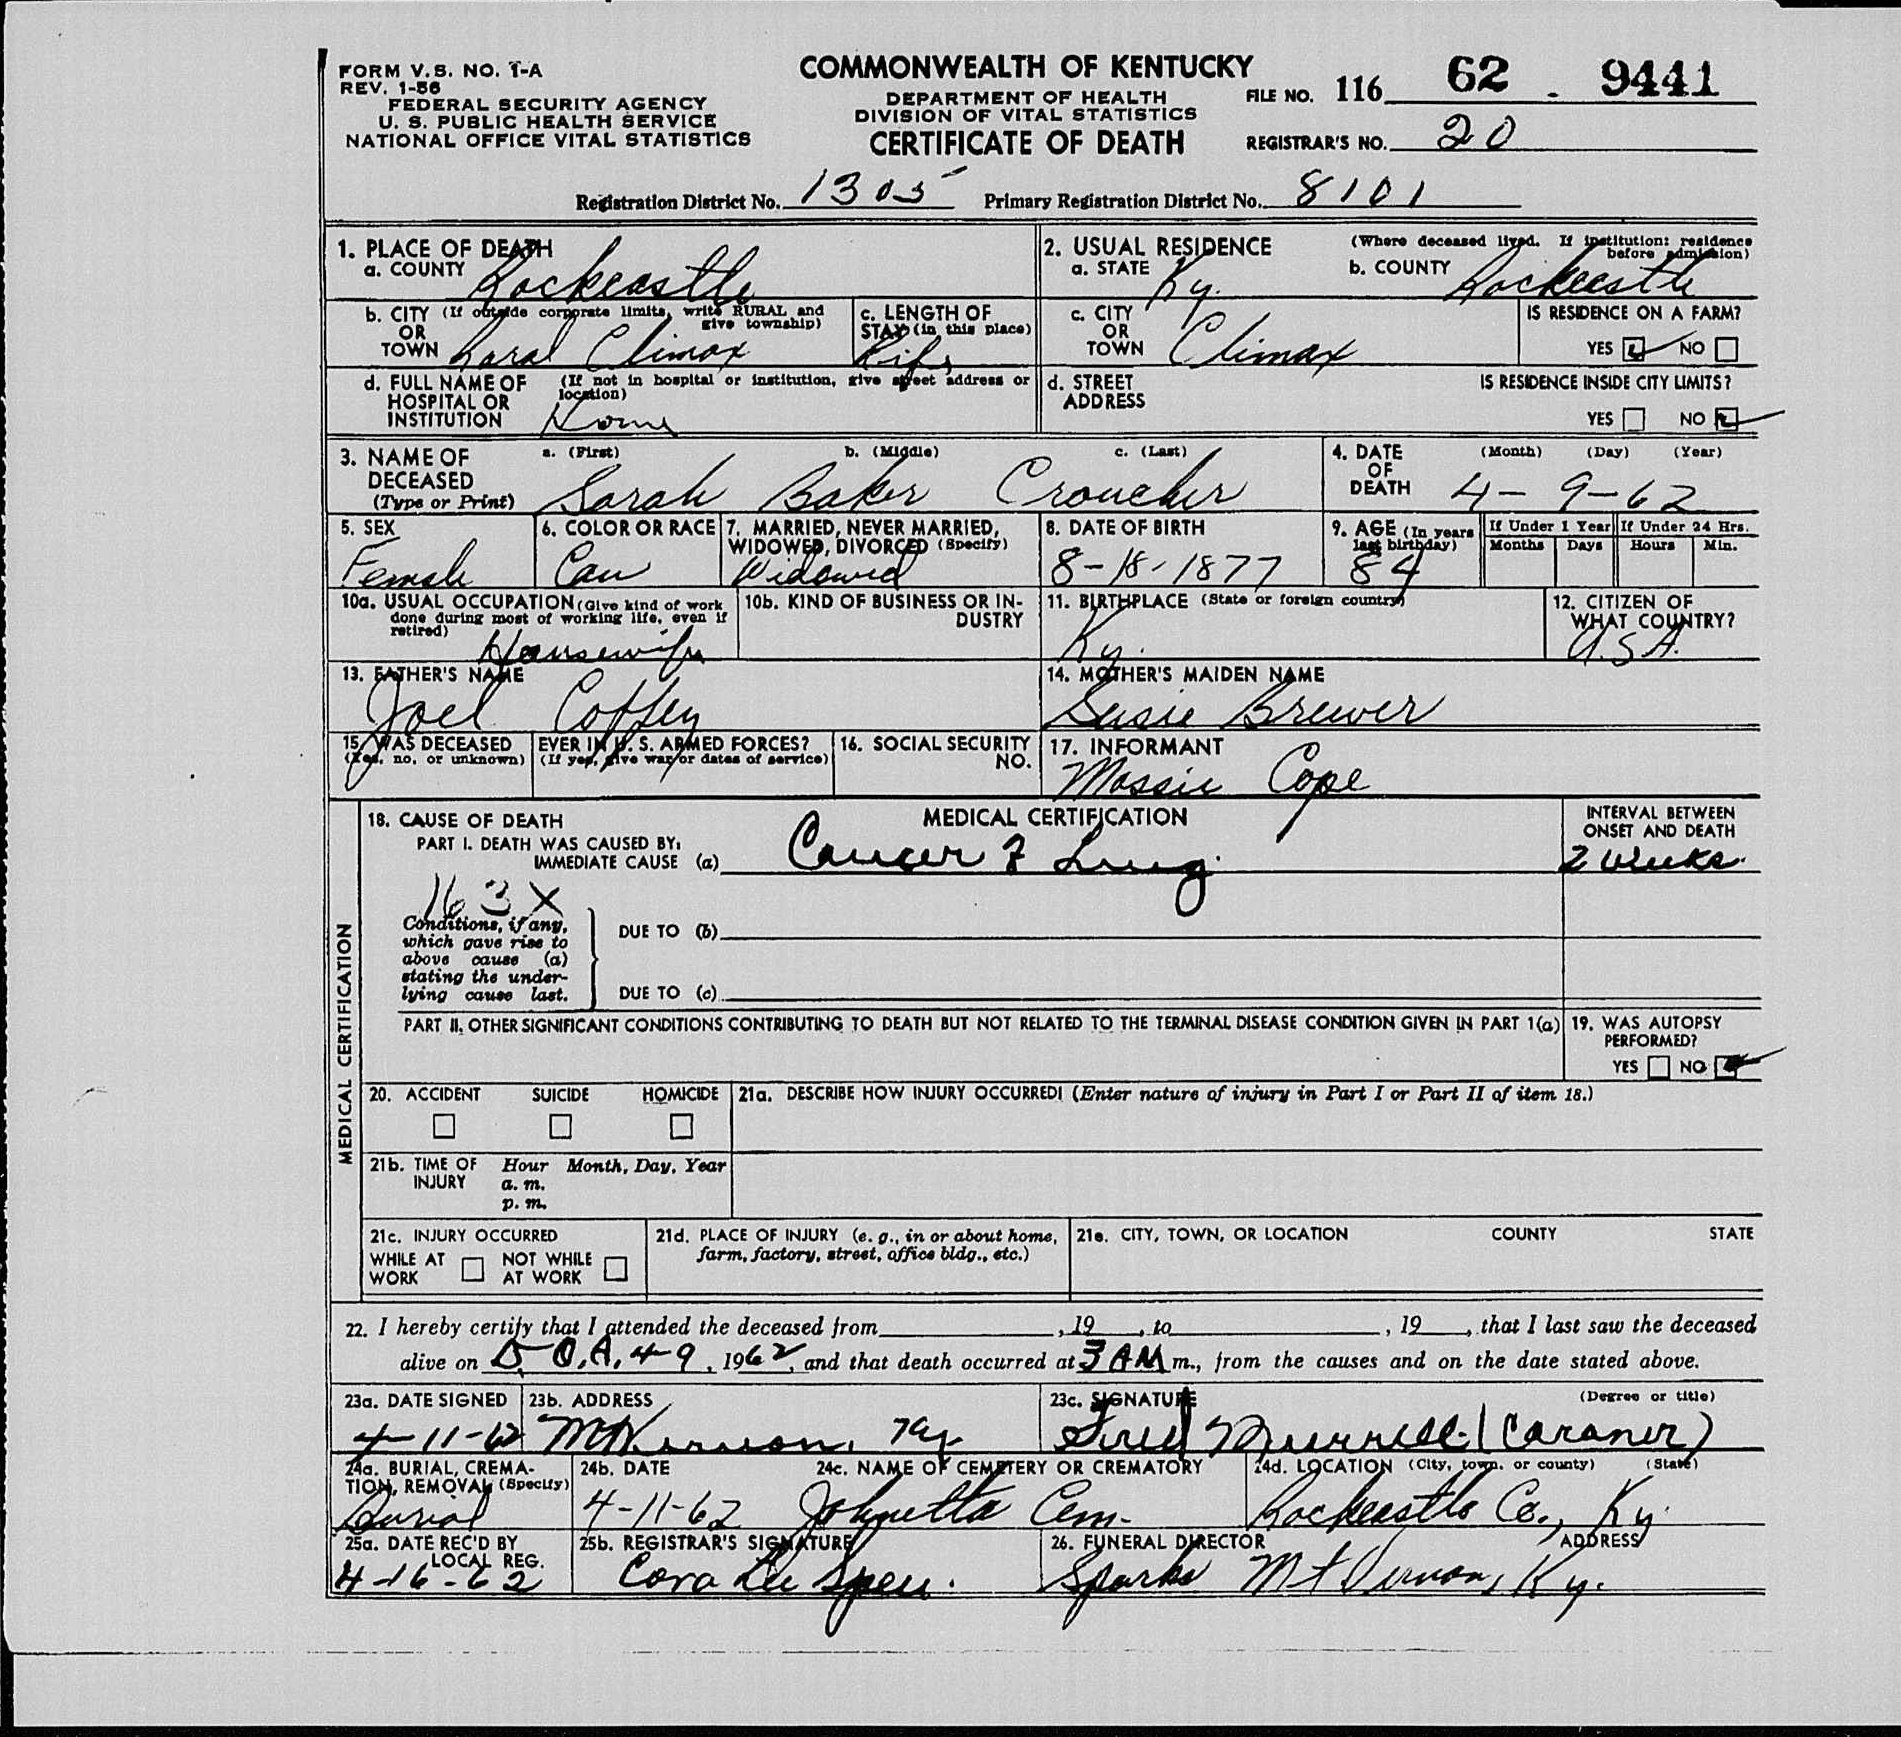 FORM V.S. NO. 1-A
REV. 1-56
FEDERAL SECURITY AGENCY
U. S. PUBLIC HEALTH SERVICE
NATIONAL OFFICE VITAL STATISTICS
COMMONWEALTH OF KENTUCKY
DEPARTMENT OF HEALTH
DIVISION OF VITAL STATISTICS
CERTIFICATE OF DEATH
FILE NO. 116 62 - 9441
REGISTRAR'S NO. 20
Registration District No. 1305 Primary Registration District No. 8101
1. PLACE OF DEATH
a. COUNTY Rockcastle
2. USUAL RESIDENCE (Where deceased lived. If institution: residence before admission)
a. STATE Ky. b. COUNTY Rockcastle
b. CITY (If outside corporate limits, write RURAL and give township)
OR
TOWN Rural Climax
c. LENGTH OF STAY (in this place)
Life
c. CITY
OR
TOWN Climax
IS RESIDENCE ON A FARM?
YES NO
d. FULL NAME OF HOSPITAL OR INSTITUTION (If not in hospital or institution, give street address or location)
Home
d. STREET ADDRESS
IS RESIDENCE INSIDE CITY LIMITS?
YES NO
3. NAME OF DECEASED
(Type or Print)
a. (First) b. (Middle) c. (Last)
Sarah Baker Croucher
4. DATE OF DEATH (Month) (Day) (Year)
4-9-62
5. SEX
Female
6. COLOR OR RACE
Cau
7. MARRIED, NEVER MARRIED, WIDOWED, DIVORCED (Specify)
Widowed
8. DATE OF BIRTH
8-18-1877
9. AGE (In years last birthday)
84
If Under 1 Year If Under 24 Hrs.
Months Days Hours Min.
10a. USUAL OCCUPATION (Give kind of work done during most of working life, even if retired)
Housewife
10b. KIND OF BUSINESS OR INDUSTRY
11. BIRTHPLACE (State or foreign country)
Ky.
12. CITIZEN OF WHAT COUNTRY?
U.S.A.
13. FATHER'S NAME
Joel Coffey
14. MOTHER'S MAIDEN NAME
Susie Brewer
15. WAS DECEASED EVER IN U. S. ARMED FORCES?
(Yes, no, or unknown) (If yes, give war or dates of service)
16. SOCIAL SECURITY NO.
17. INFORMANT
Massie Cope
MEDICAL CERTIFICATION
18. CAUSE OF DEATH
MEDICAL CERTIFICATION
INTERVAL BETWEEN ONSET AND DEATH
PART I. DEATH WAS CAUSED BY:
IMMEDIATE CAUSE (a) Cancer of Lung. 2 weeks.
163X
Conditions, if any, which gave rise to above cause (a) stating the underlying cause last.
DUE TO (b)
DUE TO (c)
PART II. OTHER SIGNIFICANT CONDITIONS CONTRIBUTING TO DEATH BUT NOT RELATED TO THE TERMINAL DISEASE CONDITION GIVEN IN PART 1(a)
19. WAS AUTOPSY PERFORMED?
YES NO
20. ACCIDENT SUICIDE HOMICIDE
21a. DESCRIBE HOW INJURY OCCURRED! (Enter nature of injury in Part I or Part II of item 18.)
21b. TIME OF INJURY Hour Month, Day, Year
a. m.
p. m.
21c. INJURY OCCURRED
WHILE AT WORK NOT WHILE AT WORK
21d. PLACE OF INJURY (e. g., in or about home, farm, factory, street, office bldg., etc.)
21e. CITY, TOWN, OR LOCATION COUNTY STATE
22. I hereby certify that I attended the deceased from , 19 , to , 19 , that I last saw the deceased
alive on D.O.A. 4-9, 1962, and that death occurred at 3 AM m., from the causes and on the date stated above.
23a. DATE SIGNED
4-11-62
23b. ADDRESS
Mt Vernon, Ky
23c. SIGNATURE (Degree or title)
(Coroner)
24a. BURIAL, CREMATION, REMOVAL (Specify)
Burial
24b. DATE
4-11-62
24c. NAME OF CEMETERY OR CREMATORY
Johnetta Cem.
24d. LOCATION (City, town, or county) (State)
Rockcastle Co., Ky.
25a. DATE REC'D BY LOCAL REG.
4-16-62
25b. REGISTRAR'S SIGNATURE
Cora Lee
26. FUNERAL DIRECTOR ADDRESS
Sparks Mt Vernon, Ky.